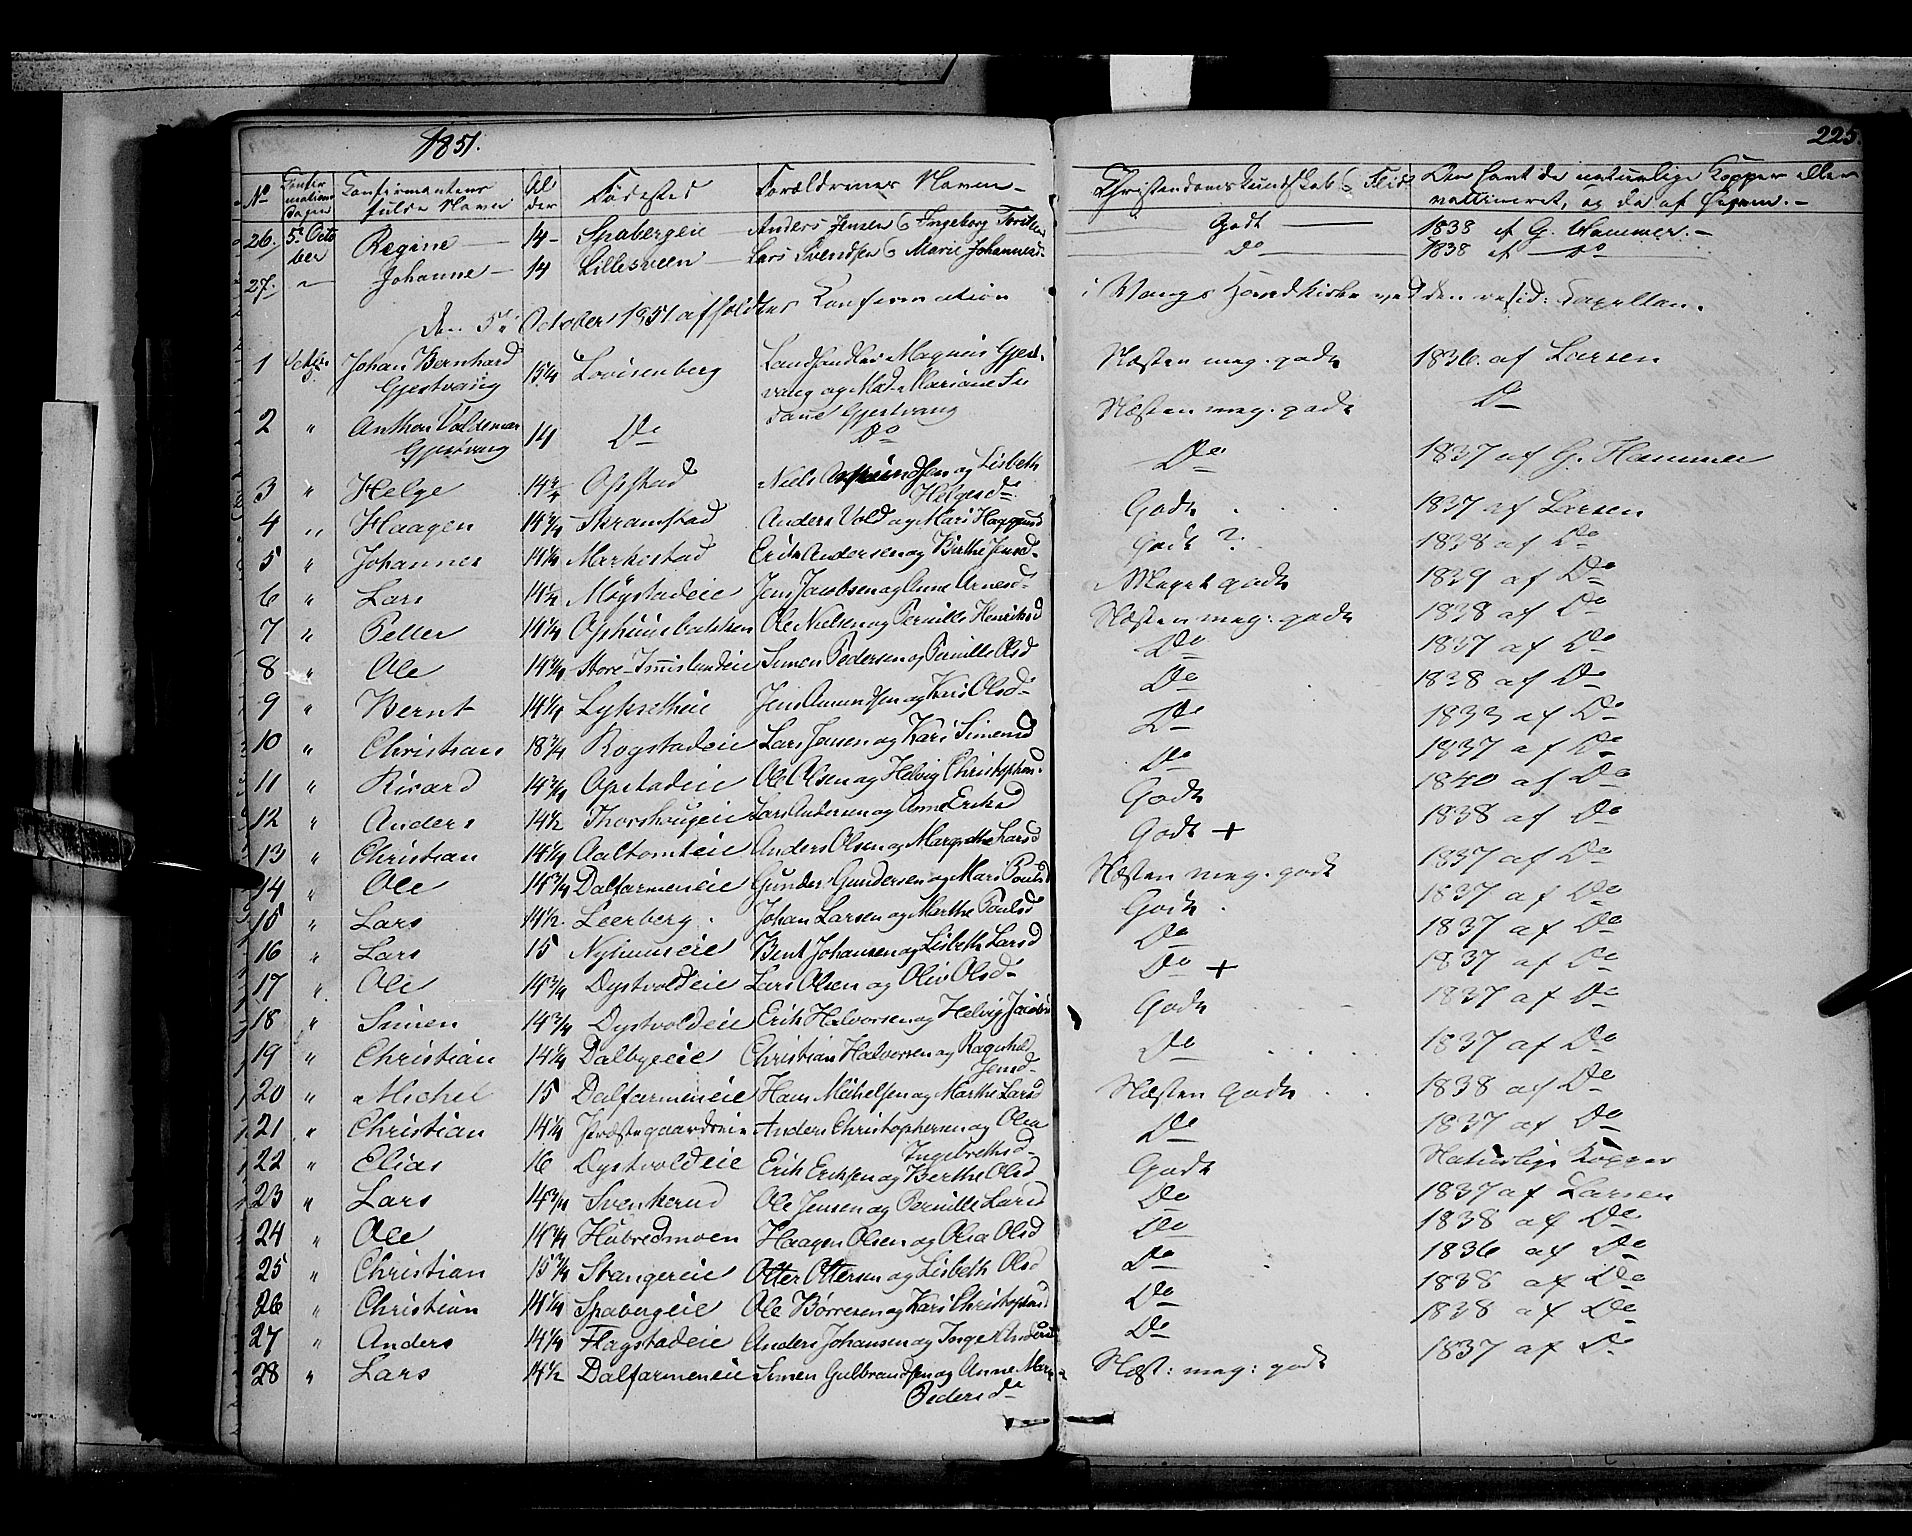 1851.
225.
No Confirmations Dagen Confirmantens fulde Navn Alder Fødested Forældrenes Navne Christendomskundskab & Flid Den havt de naturlige Kopper eller vaccineret, og da af hvem.-
26. 5te October Regine 14 Spabergeie Anders Jensen & Ingeborg Godt 1838 af G. Hammer.-
27. " Johanne 14 Lillesveen Lars Svendsen & Marie Johannesd. Do 1838 af Do
Den 5te October 1851 afholdtes Confirmation i Vangs Hovedkirke ved den resid: Capellan.
1 October 5. Johan Bernhard Gjestvang 15 1/4 Lovisenberg Landhandler Magnus Gjestvang og Mad. Mariane Gjestvang Næsten meg: godt 1836 af Larsen
2 " Anthon Valdemar Gjestvang 14 Do Do Næsten meg: godt Do
3 " Helge 14 3/4 Opstad Niels Amundsen og Lisbeth Helgesd. Do 1837 af G. Hammer
4 " Haagen 14 3/4 Skramstad Anders Vold og Mari Godt 1837 af Larsen
5 " Johannes 14 1/4 Markestad Erik Andersen og Birthe Jensd. Godt ? 1838 af Do
6 " Lars 14 1/2 Møystadeie Jens Jacobsen og Anne Arnesd. Meget godt 1839 af Do
7 " Petter 14 1/4 Ole Nielsen og Pernille Henriksd Næsten meg: godt 1838 af Do
8 " Ole 14 3/4 Simen Pedersen og Pernille Olsd Do 1837 af Do
9 " Bernt 14 1/4 Jens Amundsen og Kari Olsd. Do 1838 af Do
10 " Christian 18 3/4 Rogstadeie Lars Jensen og Kari Simensd Do 1833 af Do
11 " Ricard 14 3/4 Opstadeie Ole Olsen og Helvig Christophers. Do 1837 af Do
12 " Anders 14 1/2 Thorshougeie Lars Andersen og Anne Eriksd Godt 1840 af Do
13 " Christian 14 1/4 Aaltomteie Anders Olsen og Margrethe Larsd Godt + 1838 af Do
14 " Ole 14 3/4 Dalfarmeneie Gunder Gundersen og Mari Poulsd Næsten meg: godt 1837 af Do
15 " Lars 14 1/2. Leerberg. Johan Larsen og Marthe Poulsd Godt. 1837 af Do
16 " Lars 15 Nyhuuseie Bent Johansen og Lisbeth Larsd Do 1837 af Do
17 " Ole 14 3/4 Dystvoldeie Lars Olsen og Oliv Olsd. Do + 1837 af Do
18 " Simen 14 3/4 Dystvoldeie Erik Halvorsen og Helvig Jacobsd Godt 1837 af Do
19 " Christian 14 1/4 Dalbyeie Christian Halvorsen og Ragnhild Jensd. Do 1837 af Do
20 " Michel 15 Dalfarmeneie Hans Michelsen og Marthe Larsd Næsten godt 1838 af Do
21 " Christian 14 1/4 Præstegaardseie Anders Christophersen og Olea Ingebrethsd. Do 1837 af Do
22 " Elias 16 Dystvoldeie Erik Eriksen og Berthe Olsd Godt Naturlige Kopper
23 " Lars 14 3/4 Svenkerud Ole Jensen og Pernille Larsd Do 1837 af Larsen
24 " Ole 14 1/4 Hubredmoen Haagen Olsen og Olea Olsd Do 1838 af Do
25 " Christian 15 3/4 Stangereie Otter Ottersen og Lisbeth Olsd Do 1836 af Do
26 " Christian 14 1/4 Spabergeie Ole Børresen og Kari Christophersd Do 1838 af Do
27 " Anders 14 1/4 Flagstadeie Anders Johansen og Inger Andersd Do 1838 af Do
28 " Lars 14 1/2 Dalfarmeneie Simen Gulbrandsen og Anne Marie Pedersd. Næst: meg: godt 1837 af Do